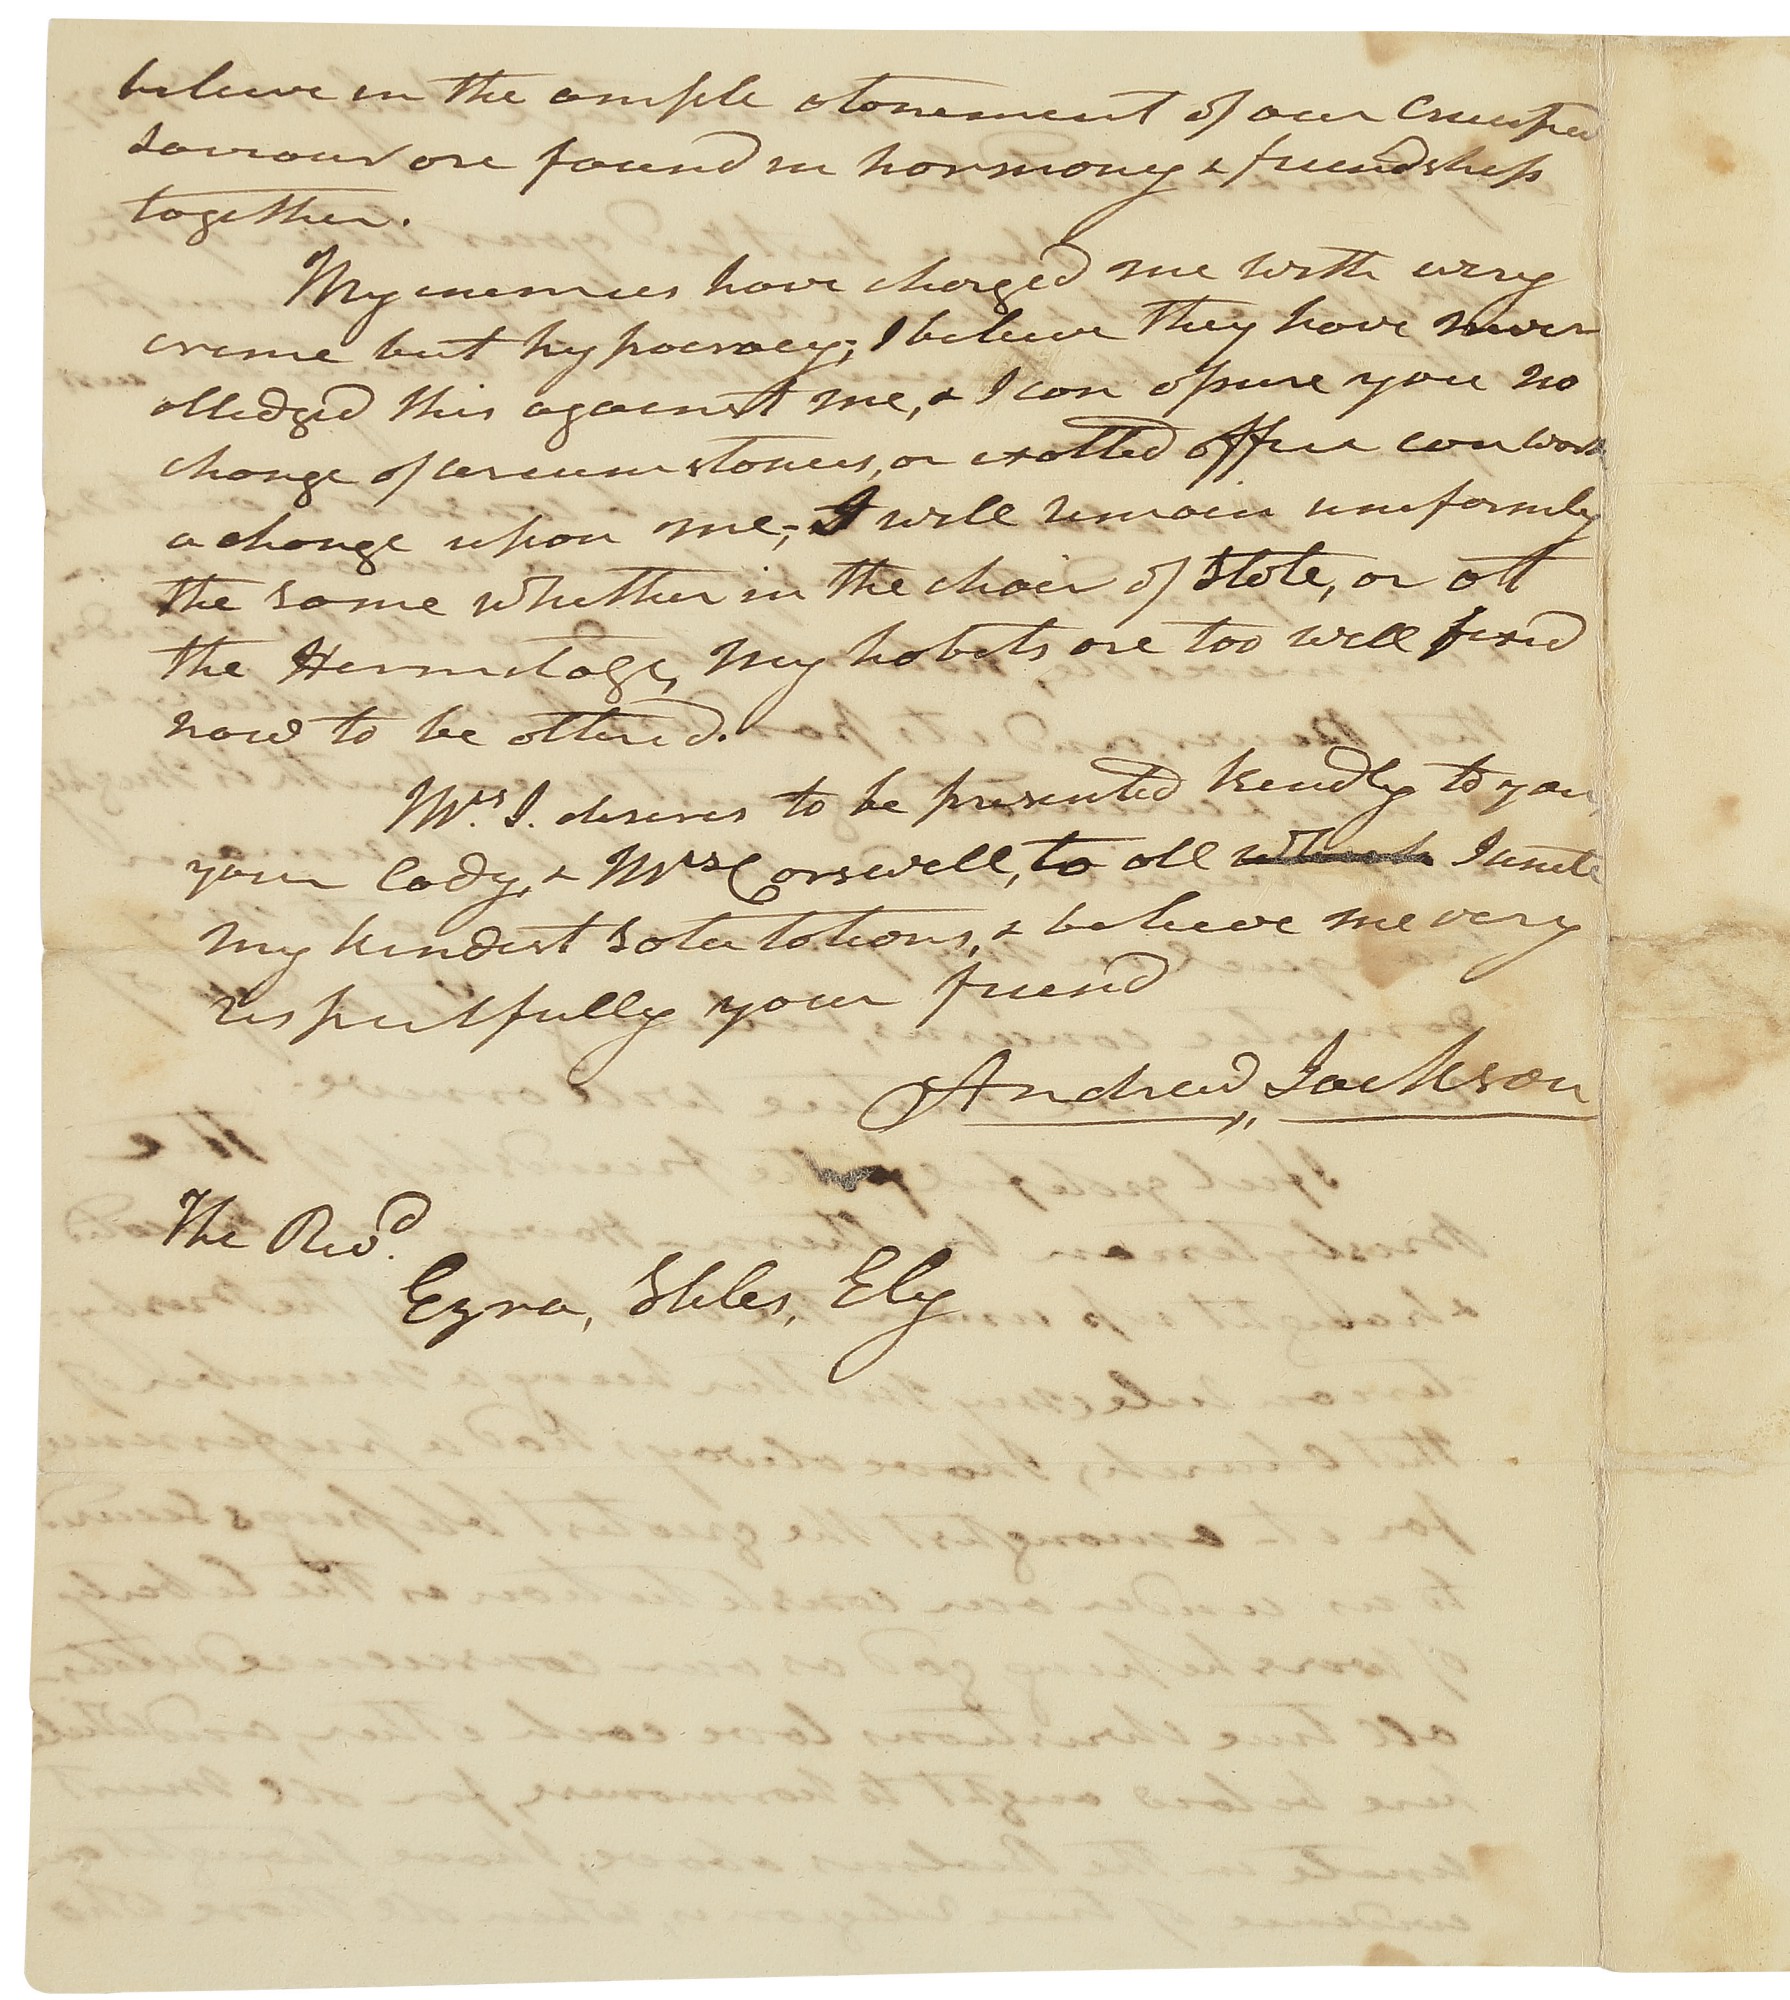 believe in the ample atonement of our Crucified
saviour are found in harmony & friendship
together.
My enemies have charged me with every
crime but hypocracy; I believe they have never
alledged this against me, & I can assure you no
change of circumstances, or exalted office can work
a change upon me; I will remain uniformly
the same whether in the chair of State, or at
the Hermitage, My habits are too well fixed
now to be altered.
Mrs. J. desires to be presented kindly to you,
your lady, & Mrs Carswell, to all which I unite
my kindest salutations, & believe me very
respectfully your friend
Andrew, Jackson
The Revd.
Ezra, Stiles, Ely